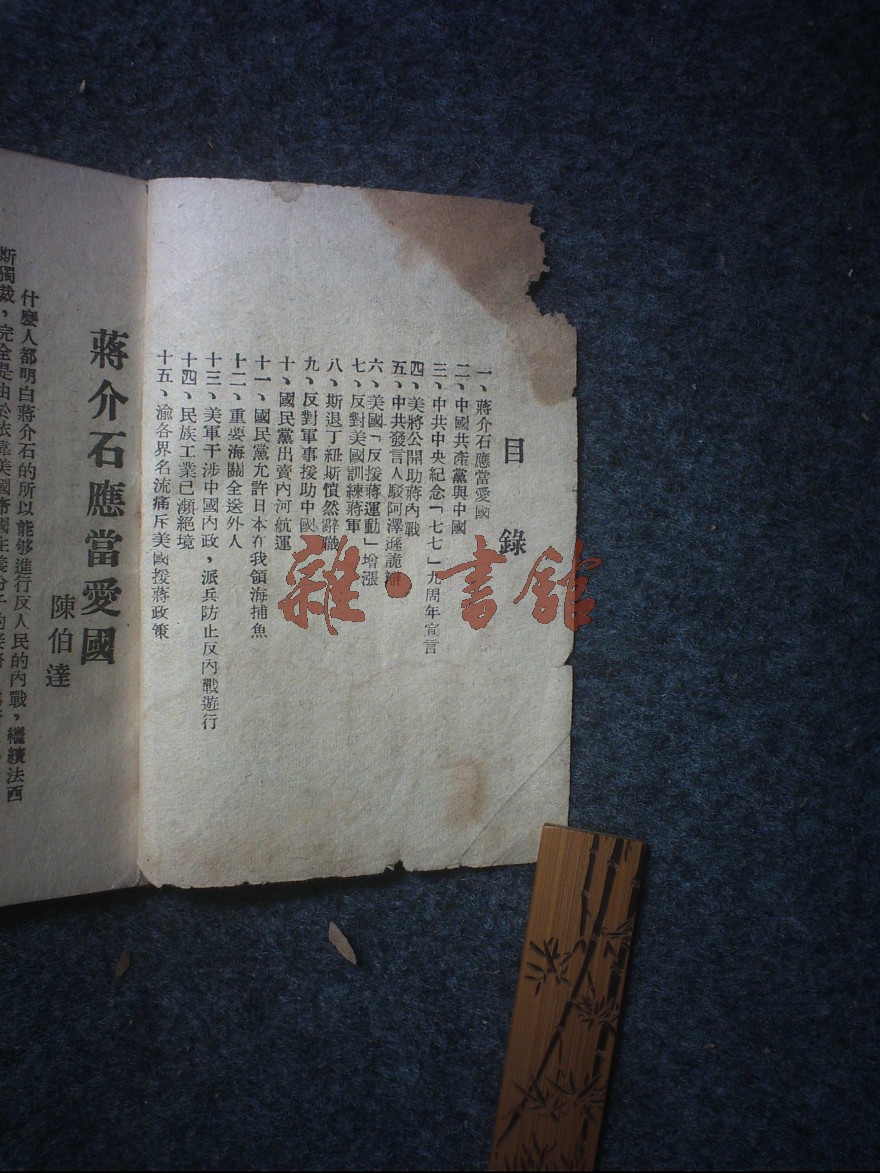 目錄
一、蔣介石應當愛國
二、中國共產黨與中國
三、中共中央紀念「七七」九周年宣言
四、美將公開助蔣內戰
五、中共發言人駁阿澤遜詭辯
六、美國「反援蔣運動」增漲
七、反對美國訓練蔣軍
八、斯退丁紐斯憤然辭職
九、反對軍事援助中國
十、國民黨出賣內河航運
十一、國民黨允許日本在我領海捕魚
十二、重要海關全送外人
十三、美軍干涉中國內政，派兵防止反內戰遊行
十四、民族工業已瀕絕境
十五、渝各界名流痛斥美國援蔣政策
蔣介石應當愛國
陳伯達
什麼人都明白蔣介石的所以能够進行反人民的內戰，繼續法西
斯獨裁，完全是由於依靠美國帝國主義分子的
雜·書館